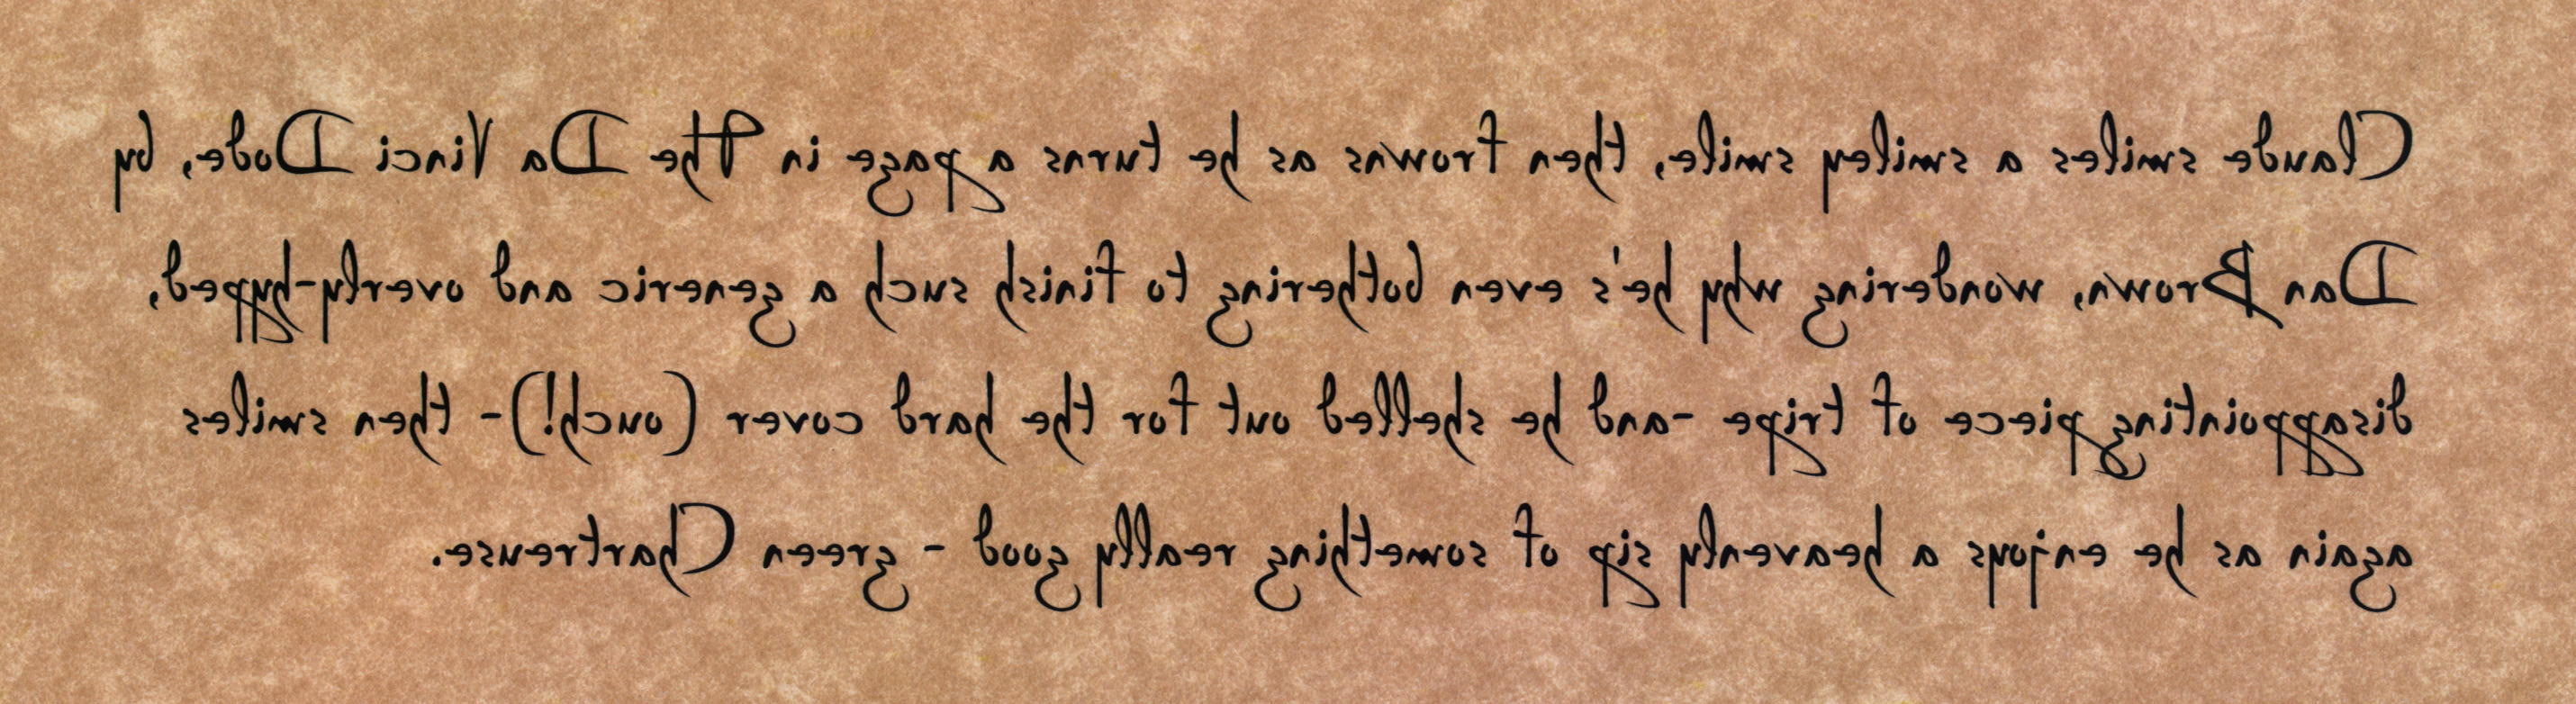 Claude smiles a smiley smile, then frowns as he turns a page in The Da Vinci Dode, by
Dan Brown, wondering why he's even bothering to finish such a generic and overly-hyped,
disappointing piece of tripe -and he shelled out for the hard cover (ouch!)- then smiles
again as he enjoys a heavenly sip of something really good - green Chartreuse.